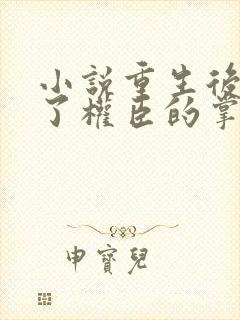 小說重生後
了權臣的掌
申寶兒